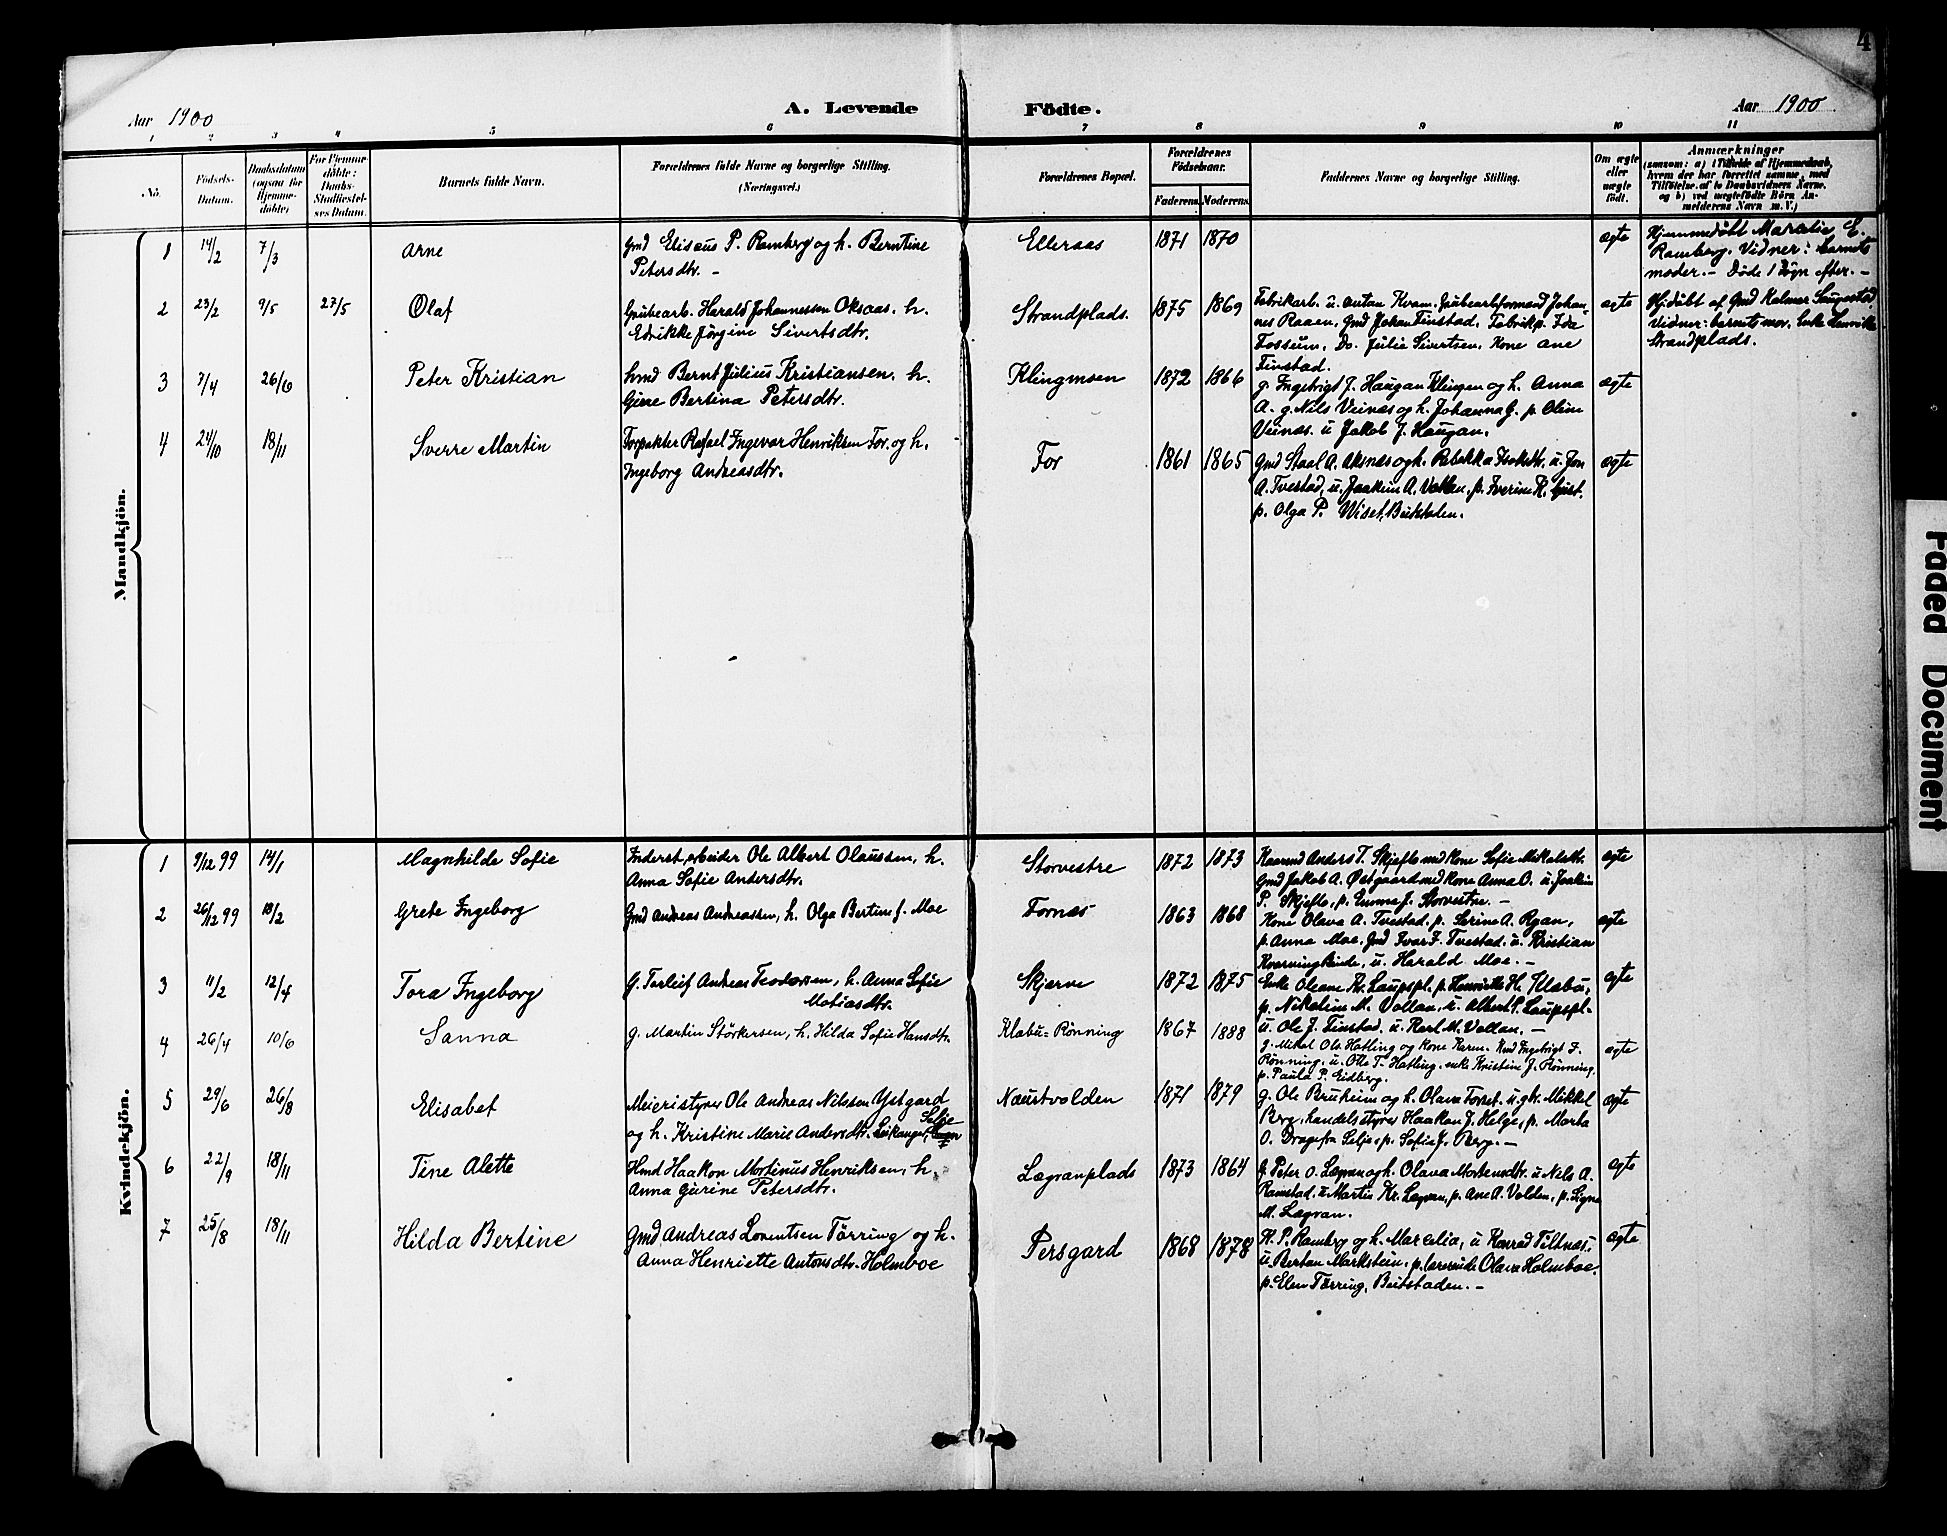 4
Aar 1900
A. Levende Födte.
Aar 1900
1 2 3 4 5 6 7 8 9 10 11
No.
Födsels-Datum.
Daabsdatum (ogsaa for Hjemme-döbte)
For Hjemme-döbte: Daabs-Stadfæstel-ses Datum.
Barnets fulde Navn.
Forældrenes fulde Navne og borgerlige Stilling.
(Næringsvei.)
Forældrenes Bopæl.
Forældrenes Födselsaar.
Faderens. Moderens.
Faddernes Navne og borgerlige Stilling.
Om ægte eller uægte födt.
Anmærkninger
(saasom: a) i Tilfælde af Hjemmedaab, hvem der har forrettet samme, med Tilföielse af to Daabsvidners Navne, og b) ved uægtefödte Börn An-melderens Navn m. V.)
Mandkjön.
1 14/2 7/3 Arne
Gmd Elisæus P. Ramberg og h. Berntine
Petersdtr. -
Elleraas 1871 1870 ægte
Hjemmedöbt Marselie E.
Ramberg. Vidner: barnets
moder. - Döde 1 Dögn efter. -
2 23/2 9/5 27/5 Olaf
Grubearb. Harald Johannessen Oksaas. h.
Edrikke Jörgine Sivertsdtr.
Strandplads. 1875 1869
Fabrikarb. u. Antan Kvam. Grubearbformand Johan-
nes Raaen. Gmd Johan Finstad. Fabrikp. Ida
Fossum. Do. Julie Sivertsen. Kone Ane
Finstad.
ægte
Hjdöbt af Gmd Kalmer Saugestad
Vidner: barnets mor. Enke Henrikke
Strandplads.
3 7/4 26/6 Peter Kristian
hmd Bernt Julius Kristiansen. h.
Gurre Bertina Petersdtr.
Klingmsen 1872 1866
g. Ingebrigt J. Haugan Klingen og h. Anna
A. g. Nils Veinæs og h. Johanna G. p. Oline
Veinæs. u Jakob J. Haugan.
ægte
4 24/10 18/11 Sverre Martin
Forpakter Rafael Ingevar Henriksen For. og h.
Ingeborg Andreasdtr.
For 1861 1865
Gmd Staal A. Aksnæs og h. Rebekka Isaksdtr. u. Jon
A. Tvestad, u. Joakim A. Vollan. p. Iverine K.
p. Olga P. Wiset, Beitstaden.
ægte
Kvindekjön.
1 9/12 99 14/1 Magnhilde Sofie
Inderst, arbeider Ole Albert Olaussen, h.
Anna Sofie Andersdtr.
Storvestre 1872 1873
Kaarmd Anders T. Skjefte med Kone Sofie Mikalsdtr.
Gmd Jakob A. Østgaard med Kone Anna O. u. Joakim
P. Skjefte, p. Emma J. Storvestre. -
ægte
2 26/12 99 18/2 Grete Ingeborg
Gmd Andreas Andreassen, h. Olga Bertine f. Moe
Fornæs 1863 1868
Kone Olava A. Tvestad. p. Serine A. Ryan,
p. Anna Moe. Gmd Ivar F. Tvestad. u. Kristian
Kverning Rinde, u. Harald Moe. -
ægte
3 11/2 12/4 Tora Ingeborg
G. Torleif Andreas Teodorsen, h. Anna Sofie
Matiasdtr.
Skjerve 1872 1875
Enke Oleane Kr. Laupspl. p. Henriette H. Klæbu,
p. Nikoline M. Vollan, u. Albert P. Laupspl.
u. Ole J. Finstad. u. Karl M. Vollan. -
ægte
4 26/4 10/6 Sanna
g. Martin Störkersen, h. Hilda Sofie Hansdtr.
Klæbu=Rönning 1867 1888
g. Mikal Ols. Hatling og Kone Karen. Kmd Ingebrigt F.
Rönning. u. Otto T. Hatling. enke Kristine J. Rönning.
p. Paula P. Eidberg.
ægte
5 29/6 26/8 Elisabet
Meieristyrer Ole Andreas Nilssen Ystgard
og h. Kristine Marie Andersdtr. Leikanger, Selje
Naustvolden 1871 1879
g. Ole Bruheim og h. Olava Forset. u. gbr. Mikkel
Berg, handelsstyrer Haakon J. Helge, p. Marta
O. Drage fra Selje, p. Sofie J. Berg. -
ægte
6 22/9 18/11 Tine Alette
Hmd Haakon Mortinus Henriksen, h.
Anna Gurine Petersdtr.
Lægranplads 1873 1864
g. Peter O. Lægran og h. Olava Mortensdtr. u Nils A.
Ramstad. u Martin Kr. Lægran, p. Ane A. Volden, p. Signe
M. Lægran.
ægte
7 25/8 18/11 Hilda Bertine
Gmd Andreas Lorentsen Törring og h.
Anna Henriette Antonsdtr. Holmboe
Persgard 1868 1878
H. P. Ramberg og h. Marselia, u Konrad Tiltnæs.
u. Bertan Markstein. p. lærerinde Olava Holmboe.
p. Elen Törring, Beitstaden. -
ægte
Faded Document